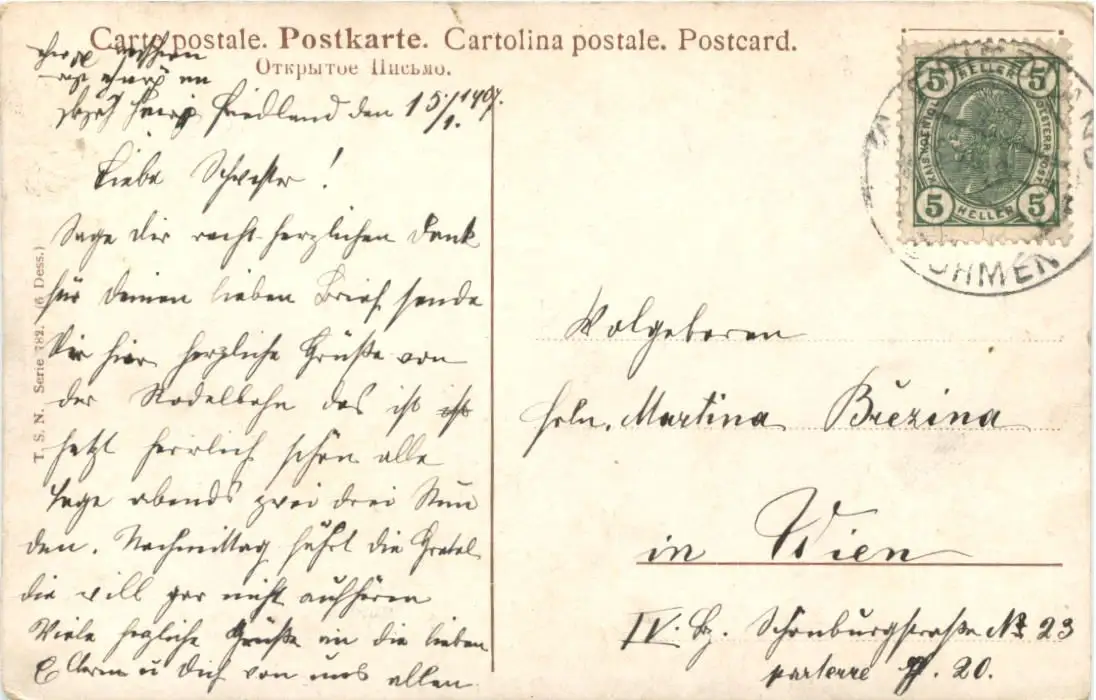 Carte postale. Postkarte. Cartolina postale. Postcard.
Открытое Письмо.
Friedland den 15/1. 1907.
Liebe Schwester!
Sage dir recht herzlichen Dank
für deinen lieben Brief sende
Dir hier herzliche Grüße von
der Rodelbahn das ist ist
jetzt herrlich schön alle
Tage abends zwei drei Stun
den. Nachmittag fährt die Gretel
die will gar nicht aufhören
Viele herzliche Grüße an die lieben
Eltern u Dich von uns allen
T. S. N. Serie 782. (6 Dess.)
5 HELLER 5
KAIS. KOENIGL. OESTERR. POST
5 HELLER 5
BÖHMEN
Wolgeboren
Frln. Martina Březina
in Wien
IV. Bz. Schönburgstraße No 23
parterre T. 20.